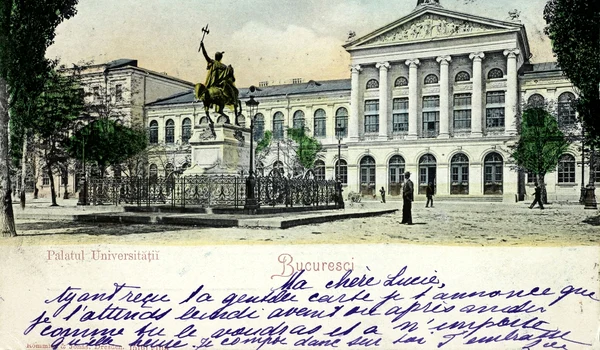 Palatul Universității
Bucuresci
Ma chère Lucie,
Ayant reçu ta gentille carte je t'annonce que
je t'attends lundi avant ou après midi
comme tu le voudras et à n'importe
quelle heure. Je compte donc sur toi. J'embrasse